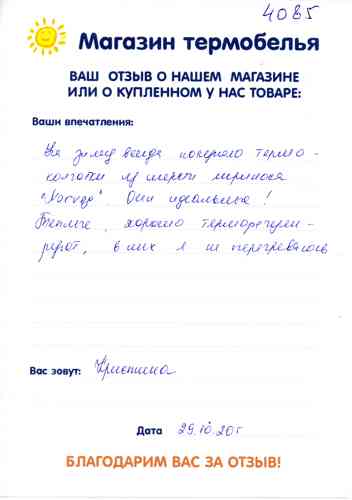 4085
Магазин термобелья
ВАШ ОТЗЫВ О НАШЕМ МАГАЗИНЕ
ИЛИ О КУПЛЕННОМ У НАС ТОВАРЕ:
Ваши впечатления:
На зиму всегда покупаю термо-
колготки из шерсти мериноса
"Norveg". Они идеальные!
Теплые, хорошо терморегули-
руют, в них я не перегреваюсь
Вас зовут: Кристина
Дата 29.10.20г
БЛАГОДАРИМ ВАС ЗА ОТЗЫВ!